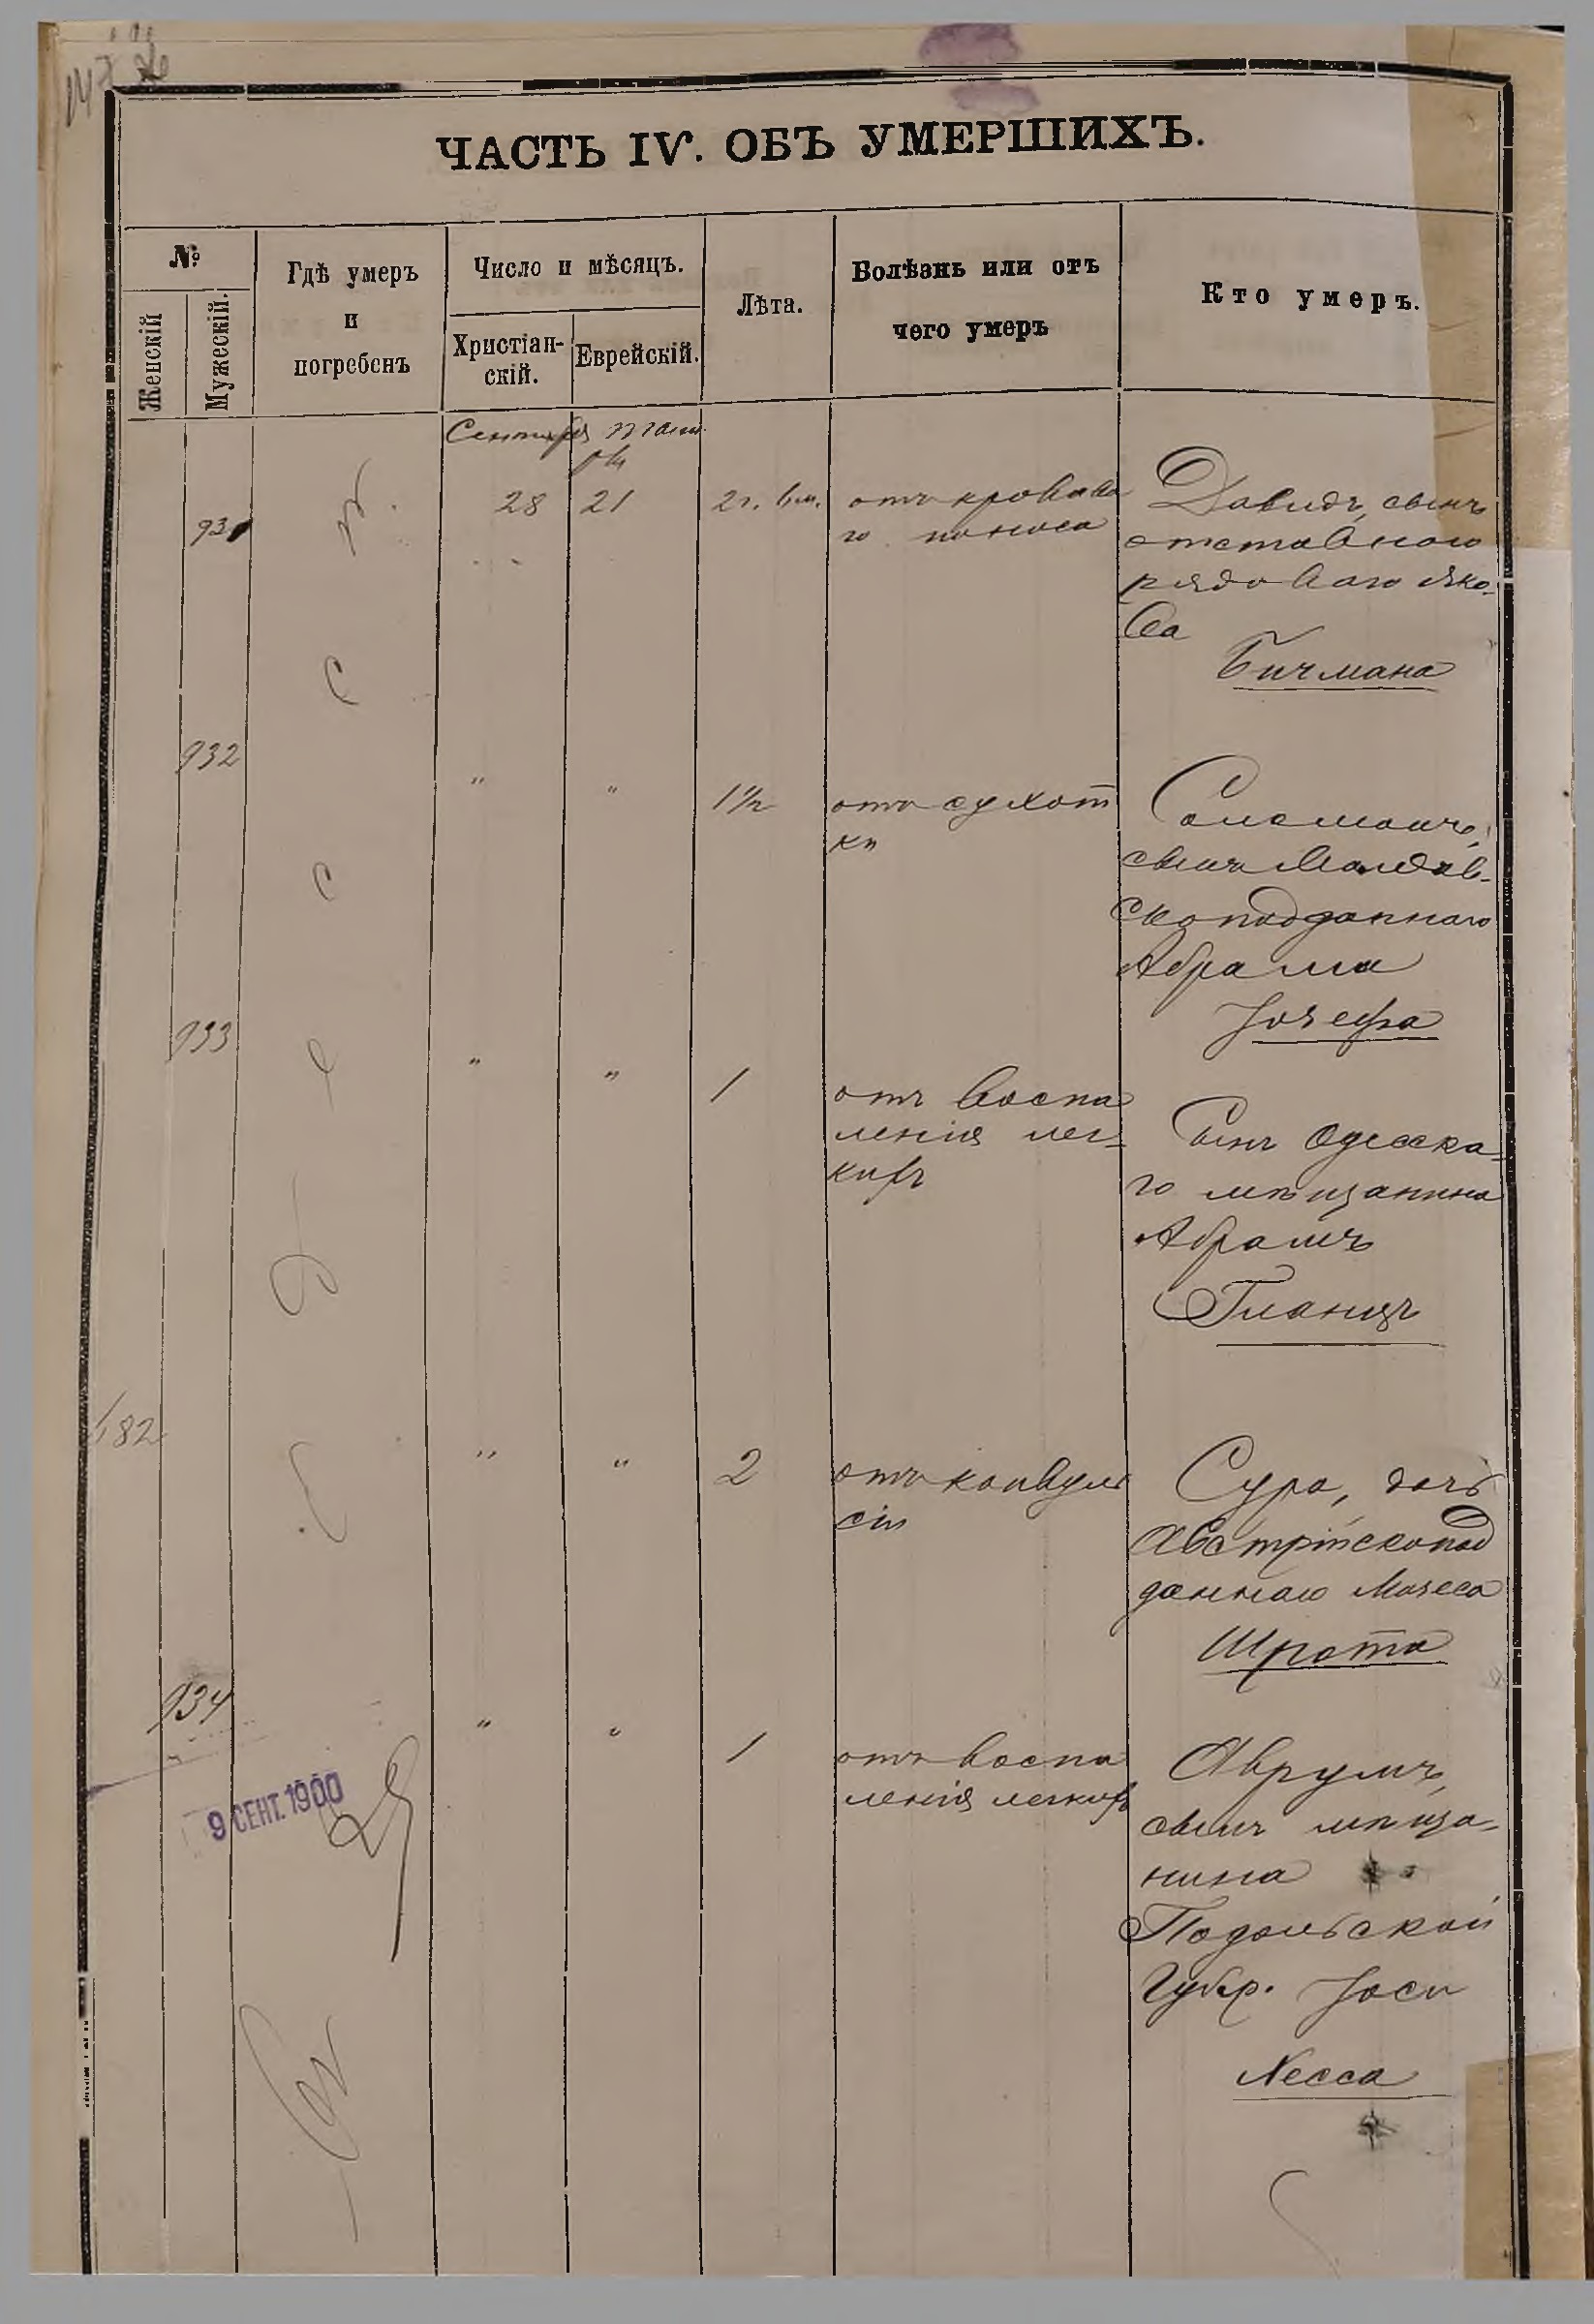 ЧАСТЬ IV. ОБЪ УМЕРШИХЪ.
№
Женскій
Мужескій.
Гдѣ умеръ
и
погребенъ
Число и мѣсяцъ.
Христіан-
скій.
Еврейскій.
Лѣта.
Болѣзнь или отъ
чего умеръ
Кто умеръ.
Сентября
931
28 21 2 г. 6 м.
отъ кровава
го поноса
Давидъ, сынъ
отставнаго
рядоваго Яко-
ва
Бичмана
932
" " 1½
отъ сухот
ки
Соломонъ,
сынъ Молдав-
скоподданнаго
Абрама
Іозефа
933
" " 1
отъ воспа
ленія лег-
кихъ
Сынъ Одесска-
го мѣщанина
Абрамъ
Гланцъ
" " 2
отъ конвуль
сіи
Сура, дочь
Австрійскопод
даннаго Мозеса
Шрота
934
" " 1
отъ воспа
ленія легкихъ
Аврумъ,
сынъ мѣща-
нина
Подольской
Губер. Іоси
Несса
9 СЕНТ. 1900